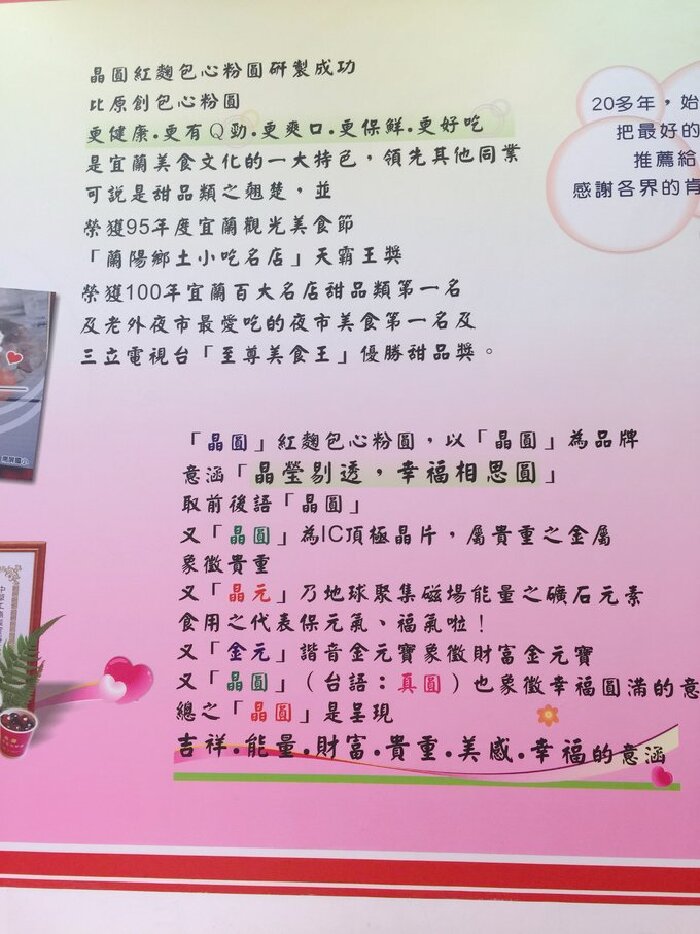 晶圓紅麴包心粉圓研製成功
比原創包心粉圓
更健康.更有Q勁.更爽口.更保鮮.更好吃
是宜蘭美食文化的一大特色，領先其他同業
可說是甜品類之翹楚，並
榮獲95年度宜蘭觀光美食節
「蘭陽鄉土小吃名店」天霸王獎
榮獲100年宜蘭百大名店甜品類第一名
及老外夜市最愛吃的夜市美食第一名及
三立電視台「至尊美食王」優勝甜品獎。
20多年，始
把最好的
推薦給
感謝各界的肯
「晶圓」紅麴包心粉圓，以「晶圓」為品牌
意涵「晶瑩剔透，幸福相思圓」
取前後語「晶圓」
又「晶圓」為IC頂極晶片，屬貴重之金屬
象徵貴重
又「晶元」乃地球聚集磁場能量之礦石元素
食用之代表保元氣、福氣啦！
又「金元」諧音金元寶象徵財富金元寶
又「晶圓」（台語：真圓）也象徵幸福圓滿的意
總之「晶圓」是呈現
吉祥.能量.財富.貴重.美感.幸福的意涵